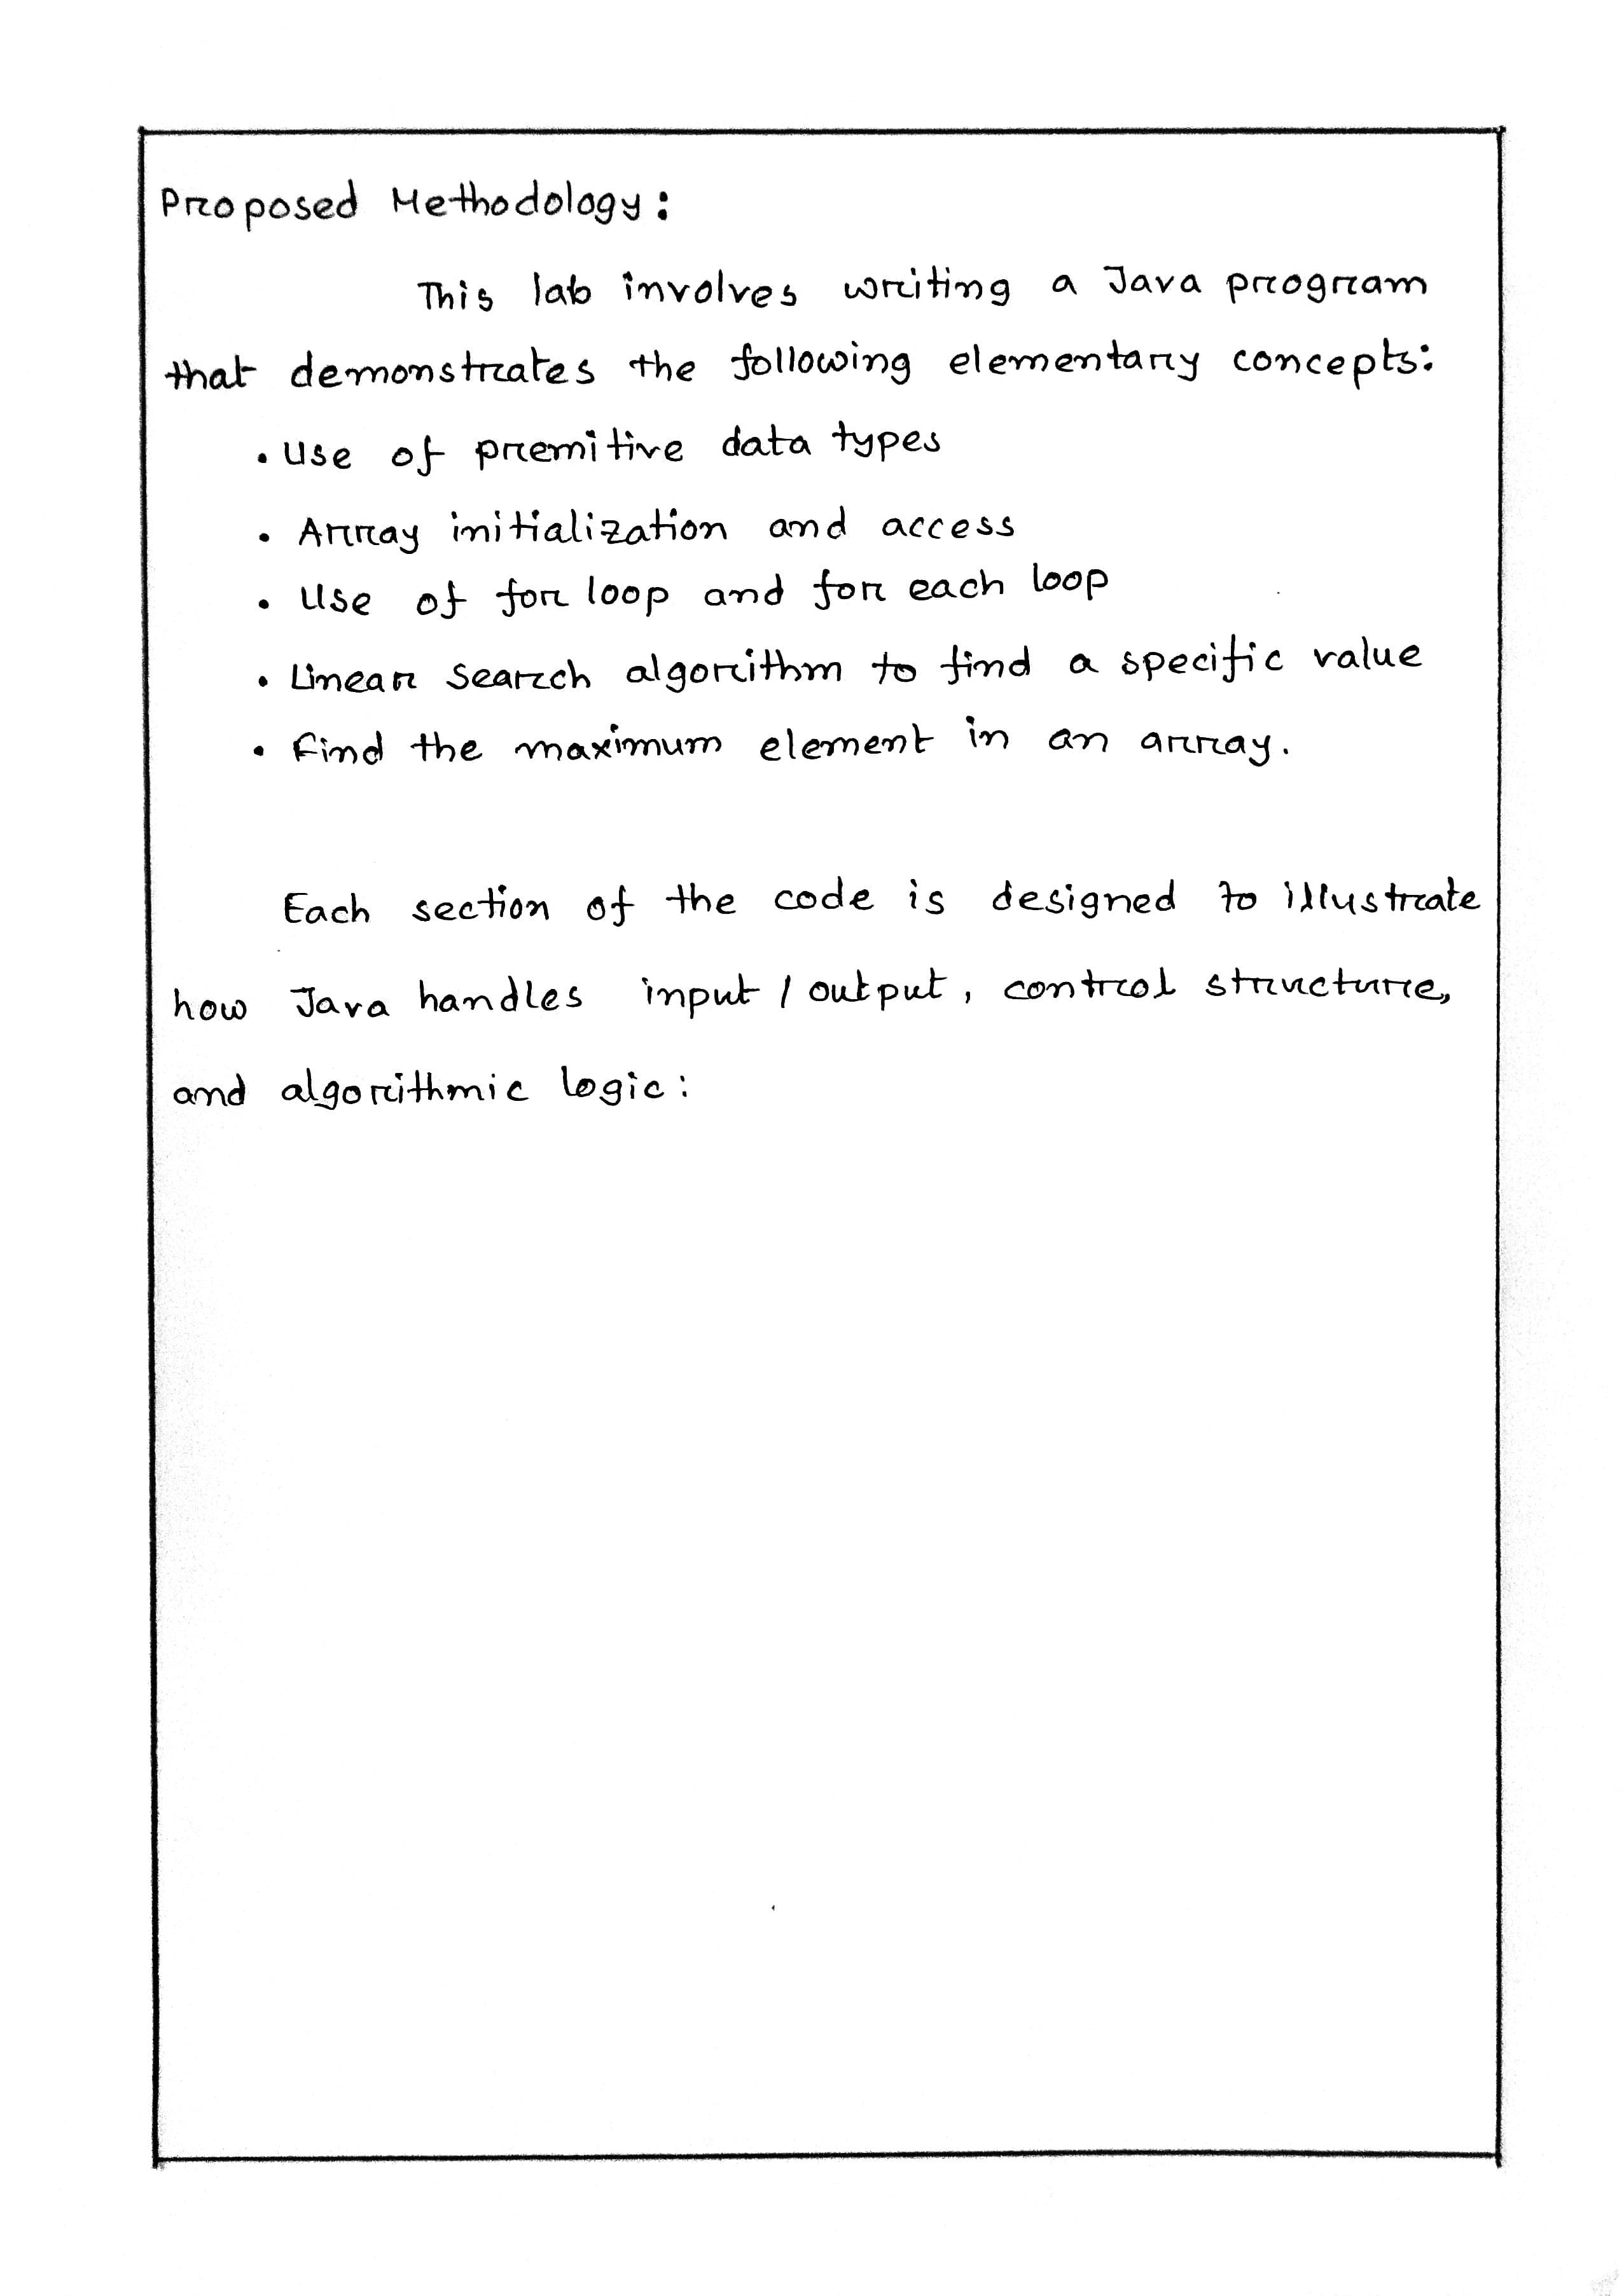 Proposed Methodology:
This lab involves writing a Java program
that demonstrates the following elementary concepts:
• Use of premitive data types
• Array initialization and access
• Use of for loop and for each loop
• Linear search algorithm to find a specific value
• Find the maximum element in an array.
Each section of the code is designed to illustrate
how Java handles input / output, control structure,
and algorithmic logic: